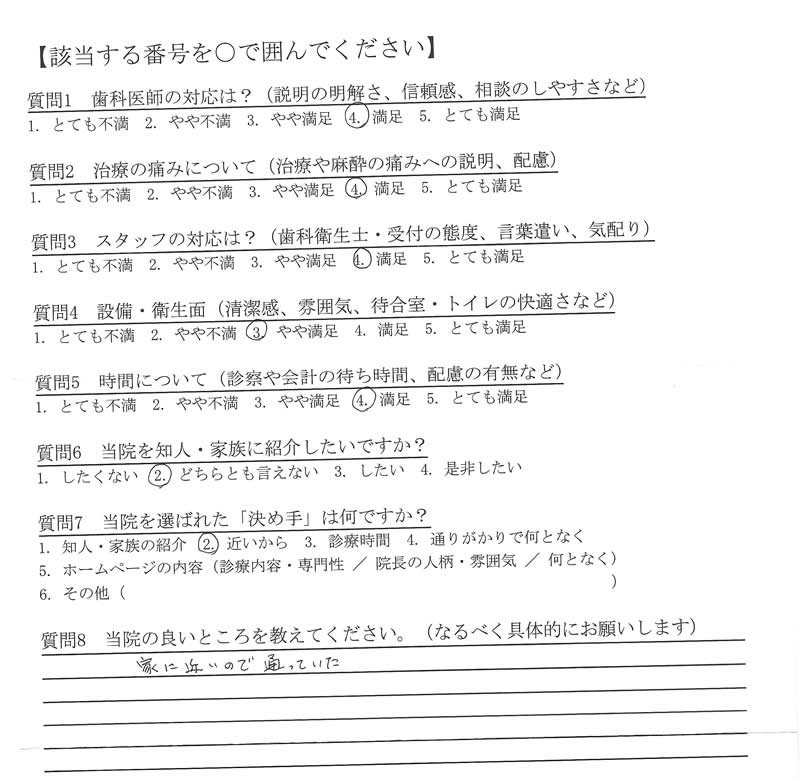 【該当する番号を〇で囲んでください】
質問1　歯科医師の対応は？（説明の明解さ、信頼感、相談のしやすさなど）
1. とても不満　2. やや不満　3. やや満足　4. 満足　5. とても満足
質問2　治療の痛みについて（治療や麻酔の痛みへの説明、配慮）
1. とても不満　2. やや不満　3. やや満足　4. 満足　5. とても満足
質問3　スタッフの対応は？（歯科衛生士・受付の態度、言葉遣い、気配り）
1. とても不満　2. やや不満　3. やや満足　4. 満足　5. とても満足
質問4　設備・衛生面（清潔感、雰囲気、待合室・トイレの快適さなど）
1. とても不満　2. やや不満　3. やや満足　4. 満足　5. とても満足
質問5　時間について（診察や会計の待ち時間、配慮の有無など）
1. とても不満　2. やや不満　3. やや満足　4. 満足　5. とても満足
質問6　当院を知人・家族に紹介したいですか？
1. したくない　2. どちらとも言えない　3. したい　4. 是非したい
質問7　当院を選ばれた「決め手」は何ですか？
1. 知人・家族の紹介　2. 近いから　3. 診療時間　4. 通りがかりで何となく
5. ホームページの内容（診療内容・専門性 ／ 院長の人柄・雰囲気 ／ 何となく）
6. その他（　　　　　）
質問8　当院の良いところを教えてください。（なるべく具体的にお願いします）
家に近いので通っていた